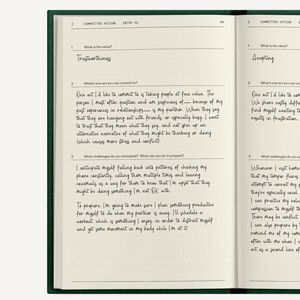 COMMITTED ACTION ENTRY 01
1 What is the value?
Trustworthiness
2 What's one act you can commit to?
One act I'd like to commit to is taking people at face value. The
person I most often question and am suspicious of — because of my
past experiences in relationships — is my partner. When they say
that they are hanging out with friends, or especially busy, I want
to trust that they mean what they say, and not spin up an
alternative narrative of what they might be thinking or doing
(which causes more stress and conflict).
3 What challenges do you anticipate? What can you do to prepare?
I anticipate myself falling back into patterns of checking my
phone constantly, calling them multiple times, and leaving
voicemails as a way for them to know that I'm upset that they
might be doing something I'm not OK with.
To prepare, I'm going to make sure I plan something productive
for myself to do when my partner is away. I'll schedule a
workout, which is something I enjoy, in order to distract myself
and get some movement in my body while I'm at it.
2 COMMITTED ACTION
1 What is the value?
Accepting
2 What's one act you can
One act I'd like to
We share vastly
find myself wanting
results in frustration.
3 What challenges do
Whenever I visit
that my temper
attempt to correct my
they're especially
I can practice my
compassion to myself
There may be conflict
I can also plan
remind me of my
often with me when I
act as a second line of